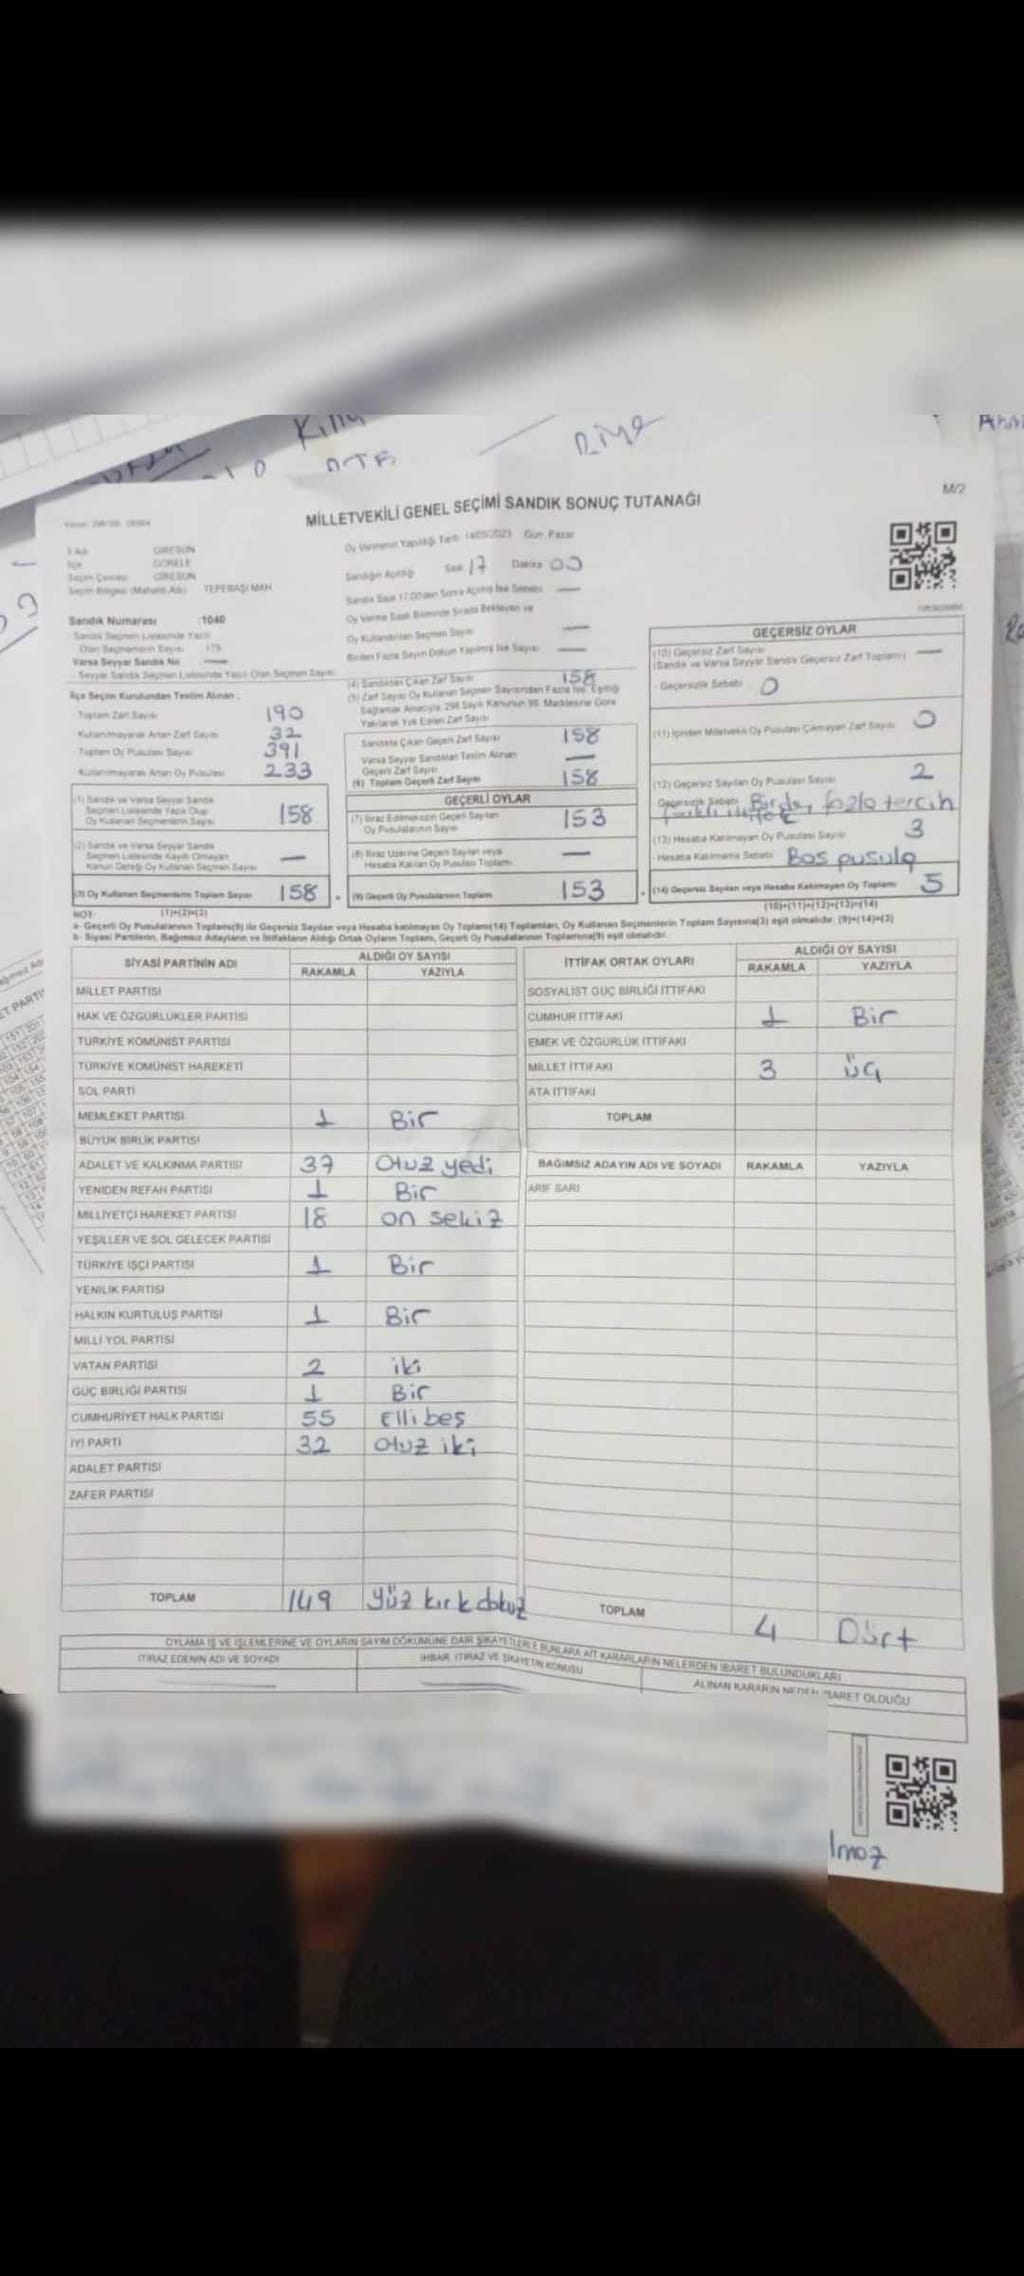 MİLLETVEKİLİ GENEL SEÇİMİ SANDIK SONUÇ TUTANAĞI
M/2
İl Adı GİRESUN
İlçe GÖRELE
Seçim Çevresi GİRESUN
Seçim Bölgesi (Mahalle Adı) TEPEBAŞI MAH
Sandık Numarası :1040
Sandık Seçmen Listesinde Yazılı
Olan Seçmenlerin Sayısı 175
Varsa Seyyar Sandık No —
Seyyar Sandık Seçmen Listesinde Yazılı Olan Seçmen Sayısı
İlçe Seçim Kurulundan Teslim Alınan ;
Toplam Zarf Sayısı 190
Kullanılmayarak Artan Zarf Sayısı 32
Toplam Oy Pusulası Sayısı 391
Kullanılmayarak Artan Oy Pusulası 233
(1) Sandık ve Varsa Seyyar Sandık
Seçmen Listesinde Yazılı Olup
Oy Kullanan Seçmenlerin Sayısı 158
(2) Sandık ve Varsa Seyyar Sandık
Seçmen Listesinde Kayıtlı Olmayan
Kanun Gereği Oy Kullanan Seçmen Sayısı —
(3) Oy Kullanan Seçmenlerin Toplam Sayısı 158
Oy Vermenin Yapıldığı Tarih 14/05/2023 Gün Pazar
Sandığın Açıldığı Saat 17 Dakika 00
Sandık Saat 17.00'den Sonra Açılmış İse Sebebi —
Oy Verme Saati Bitiminde Sırada Bekleyen ve
Oy Kullandırılan Seçmen Sayısı —
Birden Fazla Sayım Döküm Yapılmış İse Sayısı —
(4) Sandıktan Çıkan Zarf Sayısı 158
(5) Zarf Sayısı Oy Kullanan Seçmen Sayısından Fazla İse, Eşitliği
Sağlamak Amacıyla, 298 Sayılı Kanunun 98. Maddesine Göre
Yakılarak Yok Edilen Zarf Sayısı
Sandıkta Çıkan Geçerli Zarf Sayısı 158
Varsa Seyyar Sandıktan Teslim Alınan
Geçerli Zarf Sayısı —
(6) Toplam Geçerli Zarf Sayısı 158
GEÇERLİ OYLAR
(7) İtiraz Edilmeksizin Geçerli Sayılan
Oy Pusulalarının Sayısı 153
(8) İtiraz Üzerine Geçerli Sayılan veya
Hesaba Katılan Oy Pusulası Toplamı —
(9) Geçerli Oy Pusulalarının Toplamı 153
GEÇERSİZ OYLAR
(10) Geçersiz Zarf Sayısı —
(Sandık ve Varsa Seyyar Sandık Geçersiz Zarf Toplamı)
Geçersizlik Sebebi 0
(11) İçinden Milletvekili Oy Pusulası Çıkmayan Zarf Sayısı 0
(12) Geçersiz Sayılan Oy Pusulası Sayısı 2
Geçersizlik Sebebi Birden fazla tercih
farklı ittifak
(13) Hesaba Katılmayan Oy Pusulası Sayısı 3
Hesaba Katılmama Sebebi Boş pusula
(14) Geçersiz Sayılan veya Hesaba Katılmayan Oy Toplamı 5
NOT: (1)+(2)=(3)
(10)+(11)+(12)+(13)=(14)
a- Geçerli Oy Pusulalarının Toplamı(9) ile Geçersiz Sayılan veya Hesaba katılmayan Oy Toplamı(14) Toplamları, Oy Kullanan Seçmenlerin Toplam Sayısına(3) eşit olmalıdır. (9)+(14)=(3)
b- Siyasi Partilerin, Bağımsız Adayların ve İttifakların Aldığı Ortak Oyların Toplamı, Geçerli Oy Pusulalarının Toplamına(9) eşit olmalıdır.
SİYASİ PARTİNİN ADI ALDIĞI OY SAYISI
RAKAMLA YAZIYLA
MİLLET PARTİSİ
HAK VE ÖZGÜRLÜKLER PARTİSİ
TÜRKİYE KOMÜNİST PARTİSİ
TÜRKİYE KOMÜNİST HAREKETİ
SOL PARTİ
MEMLEKET PARTİSİ 1 Bir
BÜYÜK BİRLİK PARTİSİ
ADALET VE KALKINMA PARTİSİ 37 Otuz yedi
YENİDEN REFAH PARTİSİ 1 Bir
MİLLİYETÇİ HAREKET PARTİSİ 18 on sekiz
YEŞİLLER VE SOL GELECEK PARTİSİ
TÜRKİYE İŞÇİ PARTİSİ 1 Bir
YENİLİK PARTİSİ
HALKIN KURTULUŞ PARTİSİ 1 Bir
MİLLİ YOL PARTİSİ
VATAN PARTİSİ 2 iki
GÜÇ BİRLİĞİ PARTİSİ 1 Bir
CUMHURİYET HALK PARTİSİ 55 Elli beş
İYİ PARTİ 32 Otuz iki
ADALET PARTİSİ
ZAFER PARTİSİ
TOPLAM 149 Yüz kırk dokuz
İTTİFAK ORTAK OYLARI ALDIĞI OY SAYISI
RAKAMLA YAZIYLA
SOSYALİST GÜÇ BİRLİĞİ İTTİFAKI
CUMHUR İTTİFAKI 1 Bir
EMEK VE ÖZGÜRLÜK İTTİFAKI
MİLLET İTTİFAKI 3 üç
ATA İTTİFAKI
TOPLAM
BAĞIMSIZ ADAYIN ADI VE SOYADI RAKAMLA YAZIYLA
ARİF SARI
TOPLAM 4 Dört
OYLAMA İŞ VE İŞLEMLERİNE VE OYLARIN SAYIM DÖKÜMÜNE DAİR ŞİKAYETLERLE BUNLARA AİT KARARLARIN NELERDEN İBARET BULUNDUKLARI
İTİRAZ EDENİN ADI VE SOYADI
İHBAR, İTİRAZ VE ŞİKAYETİN KONUSU
ALINAN KARARIN NEDEN İBARET OLDUĞU
lmaz